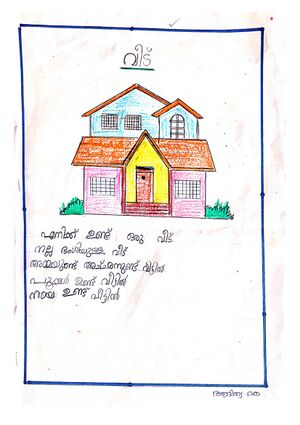 വീട്
എനിക്ക് ഉണ്ട് ഒരു വീട്
നല്ല ഭംഗിയുള്ള വീട്
അമ്മയുണ്ട് അച്ഛനുണ്ട് വീട്ടിൽ
ഉണ്ട് വീട്ടിൽ
നായ ഉണ്ട് വീട്ടിൽ